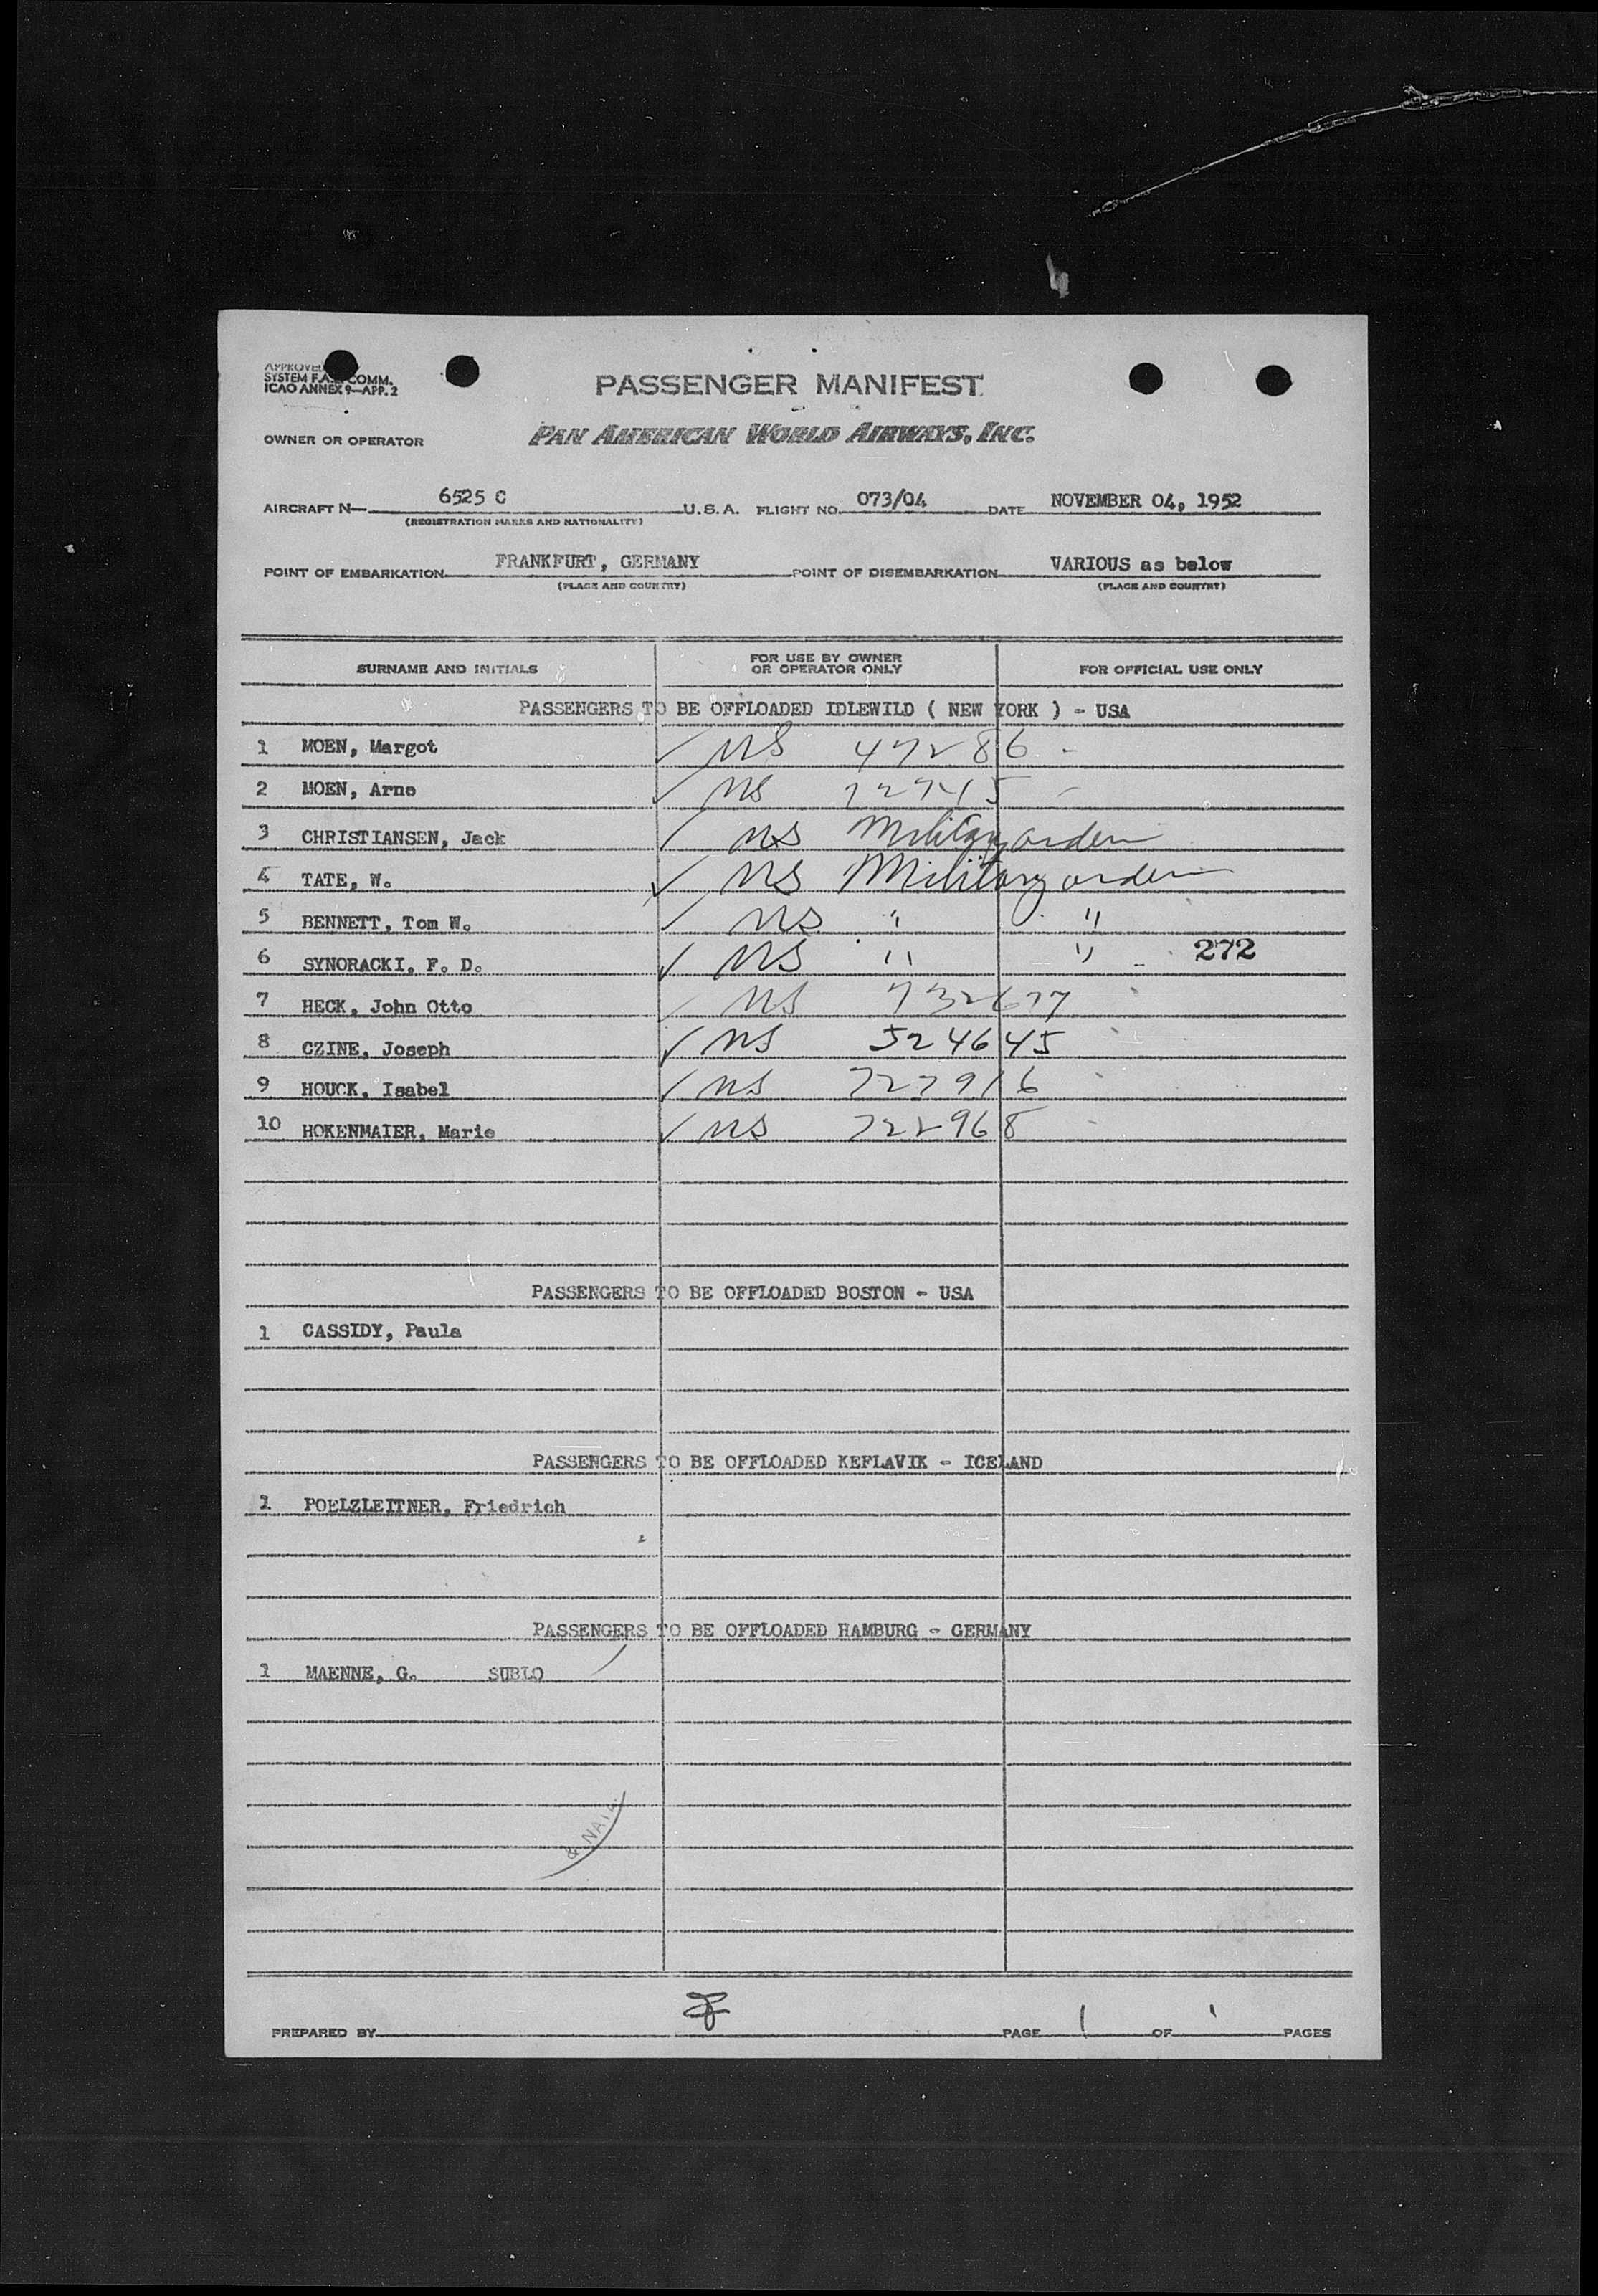 APPROVED
SYSTEM F.A.L. COMM.
ICAO ANNEX 9—APP. 2
PASSENGER MANIFEST
OWNER OR OPERATOR PAN AMERICAN WORLD AIRWAYS, INC.
AIRCRAFT N— 6525 C U.S.A. FLIGHT NO. 073/04 DATE NOVEMBER 04, 1952
(REGISTRATION MARKS AND NATIONALITY)
POINT OF EMBARKATION FRANKFURT, GERMANY POINT OF DISEMBARKATION VARIOUS as below
(PLACE AND COUNTRY) (PLACE AND COUNTRY)
SURNAME AND INITIALS FOR USE BY OWNER OR OPERATOR ONLY FOR OFFICIAL USE ONLY
PASSENGERS TO BE OFFLOADED IDLEWILD ( NEW YORK ) - USA
1 MOEN, Margot ✓ NS 47286 -
2 MOEN, Arne ✓ NS
3 CHRISTIANSEN, Jack ✓ NS Military orders
4 TATE, W. ✓ NS Military orders
5 BENNETT, Tom W. ✓ NS " "
6 SYNORACKI, F. D. ✓ NS " " 272
7 HECK, John Otto ✓ NS 732677
8 CZINE, Joseph ✓ NS 524645
9 HOUCK, Isabel ✓ NS 727916
10 HOKENMAIER, Marie ✓ NS 722968
PASSENGERS TO BE OFFLOADED BOSTON - USA
1 CASSIDY, Paula
PASSENGERS TO BE OFFLOADED KEFLAVIK - ICELAND
1 POELZLEITNER, Friedrich
PASSENGERS TO BE OFFLOADED HAMBURG - GERMANY
1 MAENNE, G. SUBLO
PREPARED BY PAGE 1 OF 1 PAGES